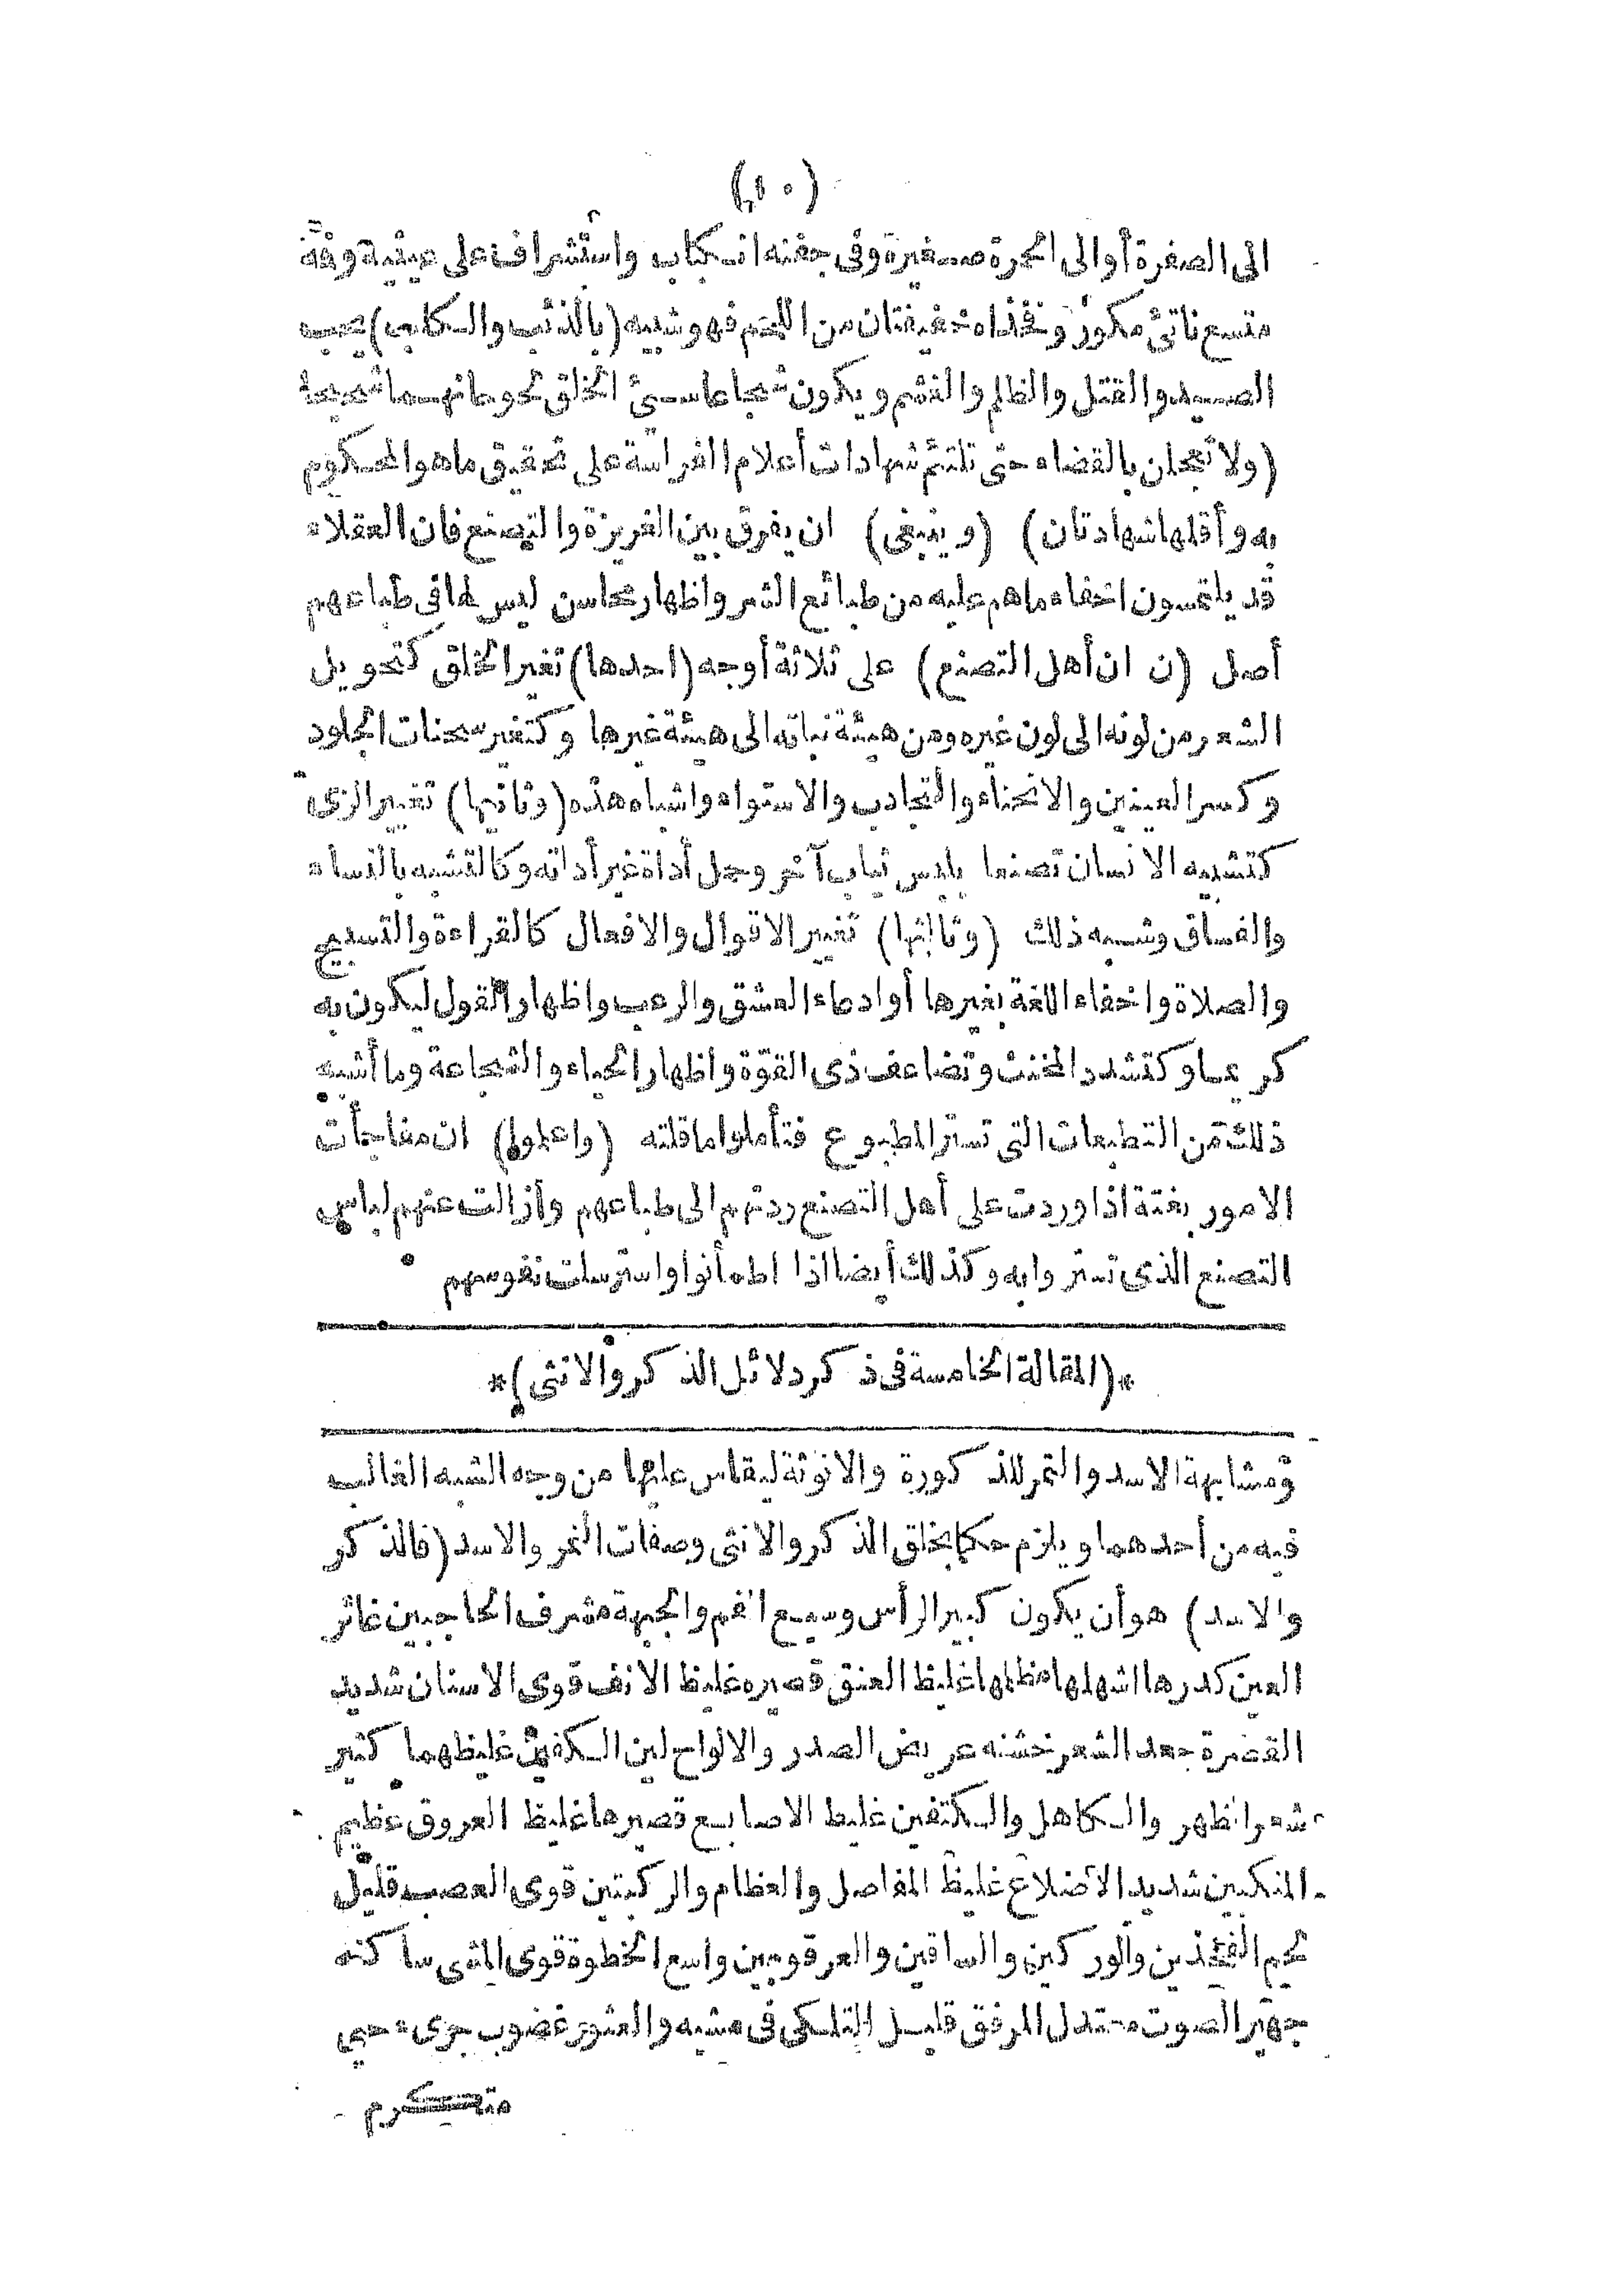 (١٠)
الى الصفرة أو الى الحمرة صغيرة وفى جفنه انكباب واستشراف على عينيه وفه
متسع ناتئ مكور وفخذاه خفيفتان من اللحم فهو شبيه (بالذئب والكلب) يحب
الصيد والقتل والظلم والغشم و يكون شجاعا سيئ الخلق نحو مانهما شحيحا
(ولا تعجلن بالقضاء حتى تلتئم شهادات أعلام الفراسة على تحقيق ما هو المحكوم
به وأقلها شهادتان) (و ينبغى) ان يفرق بين الغريزة والتصنع فان العقلاء
قد يلتمسون اخفاء ما هم عليه من طبائع الشر واظهار محاسن ليس لها فى طباعهم
أصل (ن ان أهل التصنع) على ثلاثة أوجه (احدها) تغير الخلق كتحويل
الشعر من لونه الى لون غيره ومن هيئة نباته الى هيئة غيرها وكتغير سحنات الجلود
وكسر العينين والانحناء والتحادب والاستواء واشباه هذه (وثانيها) تغيير الزى
كتشبيه الانسان تصنعا بلبس ثياب آخر وحمل أداة غير أداته وكالتشبه بالنساء
والفساق وشبه ذلك (وثالثها) تغيير الاقوال والافعال كالقراءة والتسبيح
والصلاة واخفاء اللغة بغيرها أو ادعاء العشق والرعب واظهار القول ليكون به
كر عما وكتشدد المخنث وتضاعف ذى القوّة واظهار الحياء والشجاعة وما أشبه
ذلك من التطبعات التى تستر المطبوع فتأملوا ما قلته (واعلموا) ان مفاجآت
الامور بغتة اذا وردت على أهل التصنع ردتهم الى طباعهم وأزالت عنهم لباس
التصنع الذى تستروا به وكذلك أيضا اذا اطمأنوا واسترسلت نفوسهم
*(المقالة الخامسة فى ذكر دلائل الذكر والانثى)*
ومشابهة الاسد والنمر للذكورة والانوثة ليقاس عليها من وجه الشبه الغالب
فيه من أحدهما و يلزم حكما بخلق الذكر والانثى وصفات النمر والاسد (فالذكر
والاسد) هو أن يكون كبير الرأس وسيع الفم والجبهة مشرف الحاجبين غائر
العين كدرها اشهلها مظلمها غليظ العنق قصيره غليظ الانف قوى الاسنان شديد
القصرة جعد الشعر خشنه عريض الصدر والالواح لين الكفين غليظهما كثير
شعر الظهر والكاهل والكتفين غليظ الاصابع قصيرها غليظ العروق عظيم
المنكبين شديد الاضلاع غليظ المفاصل والعظام والركبتين قوى العصب قليل
لحم الفخذين والوركين والساقين والعرقوبين واسع الخطوة قوى المشى ساكنه
جهير الصوت معتدل المرفق قليل التلكى فى مشيه والعثور غضوب جرىء حيى
متكرم